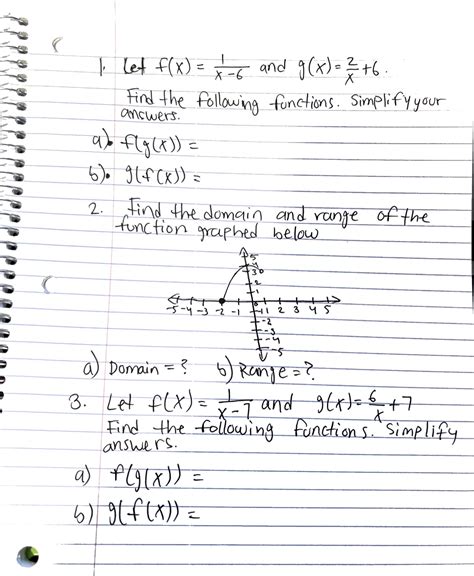 1. Let f(x) = 1/(x-6) and g(x) = 2/x + 6.
Find the following functions. Simplify your
answers.
a). f(g(x)) =
b). g(f(x)) =
2. Find the domain and range of the
function graphed below
5
4
3
2
1
-5 -4 -3 -2 -1 1 2 3 4 5
-2
-3
-4
-5
a) Domain = ? b) Range = ?
3. Let f(x) = 1/(x-7) and g(x) = 6/x + 7
Find the following functions. Simplify
answers.
a) f(g(x)) =
b) g(f(x)) =